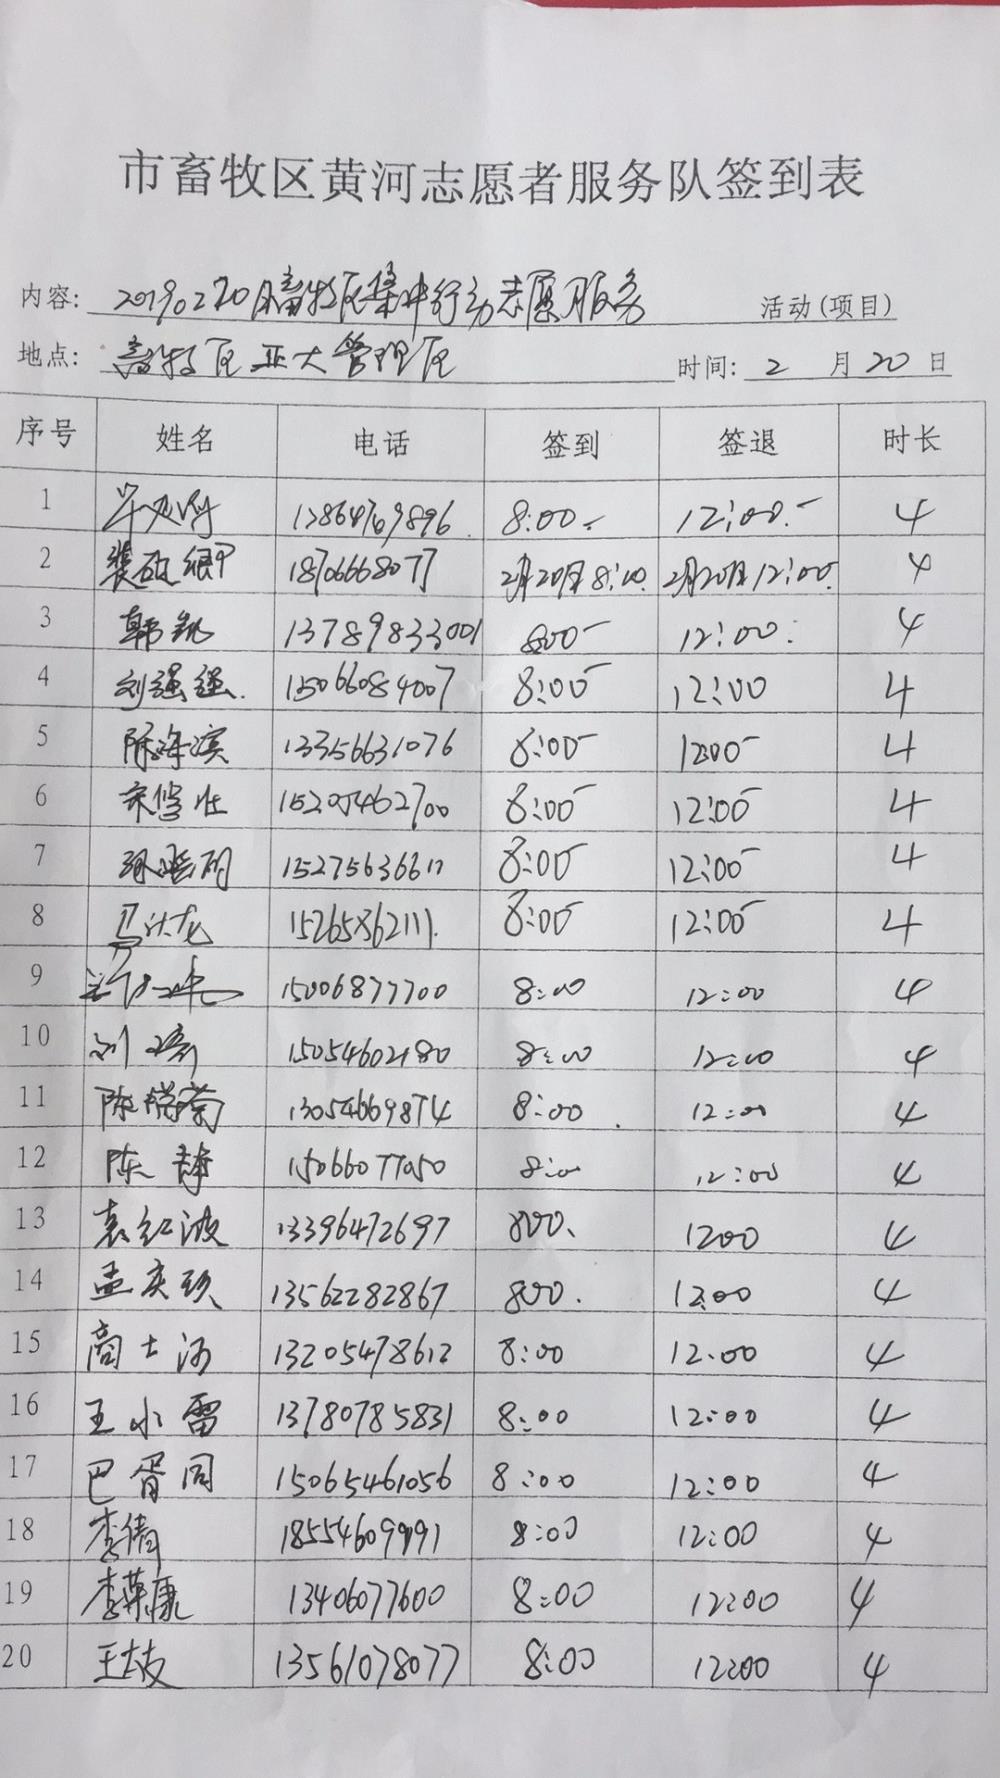 市畜牧区黄河志愿者服务队签到表
内容: 20190220日畜牧区集中行动志愿服务 活动(项目)
地点: 畜牧区亚大管理区 时间: 2 月 20 日
序号 姓名 电话 签到 签退 时长
1 12864769896 8:00 12:00 4
2 18706668077 2月20日8:00 2月20日12:00 4
3 韩凯 13789833001 800 12:00 4
4 刘强强 15066084007 8:00 12:00 4
5 陈海滨 13356631076 8:00 1200 4
6 15205462700 8:00 12:00 4
7 15275636611 8:00 12:00 4
8 马达龙 15265862111 8:00 12:00 4
9 15006877700 8:00 12:00 4
10 15054602180 8:00 12:00 4
11 13054669874 8:00 12:00 4
12 陈静 15066077050 8:00 12:00 4
13 袁红波 13396472697 800 1200 4
14 13562282867 800 12:00 4
15 商士河 13205478612 8:00 12:00 4
16 王小雷 13780785831 8:00 12:00 4
17 巴胥同 15065461056 8:00 12:00 4
18 李倩 18554609991 8:00 12:00 4
19 李荣康 13406077600 8:00 12:00 4
20 13561078077 8:00 12:00 4